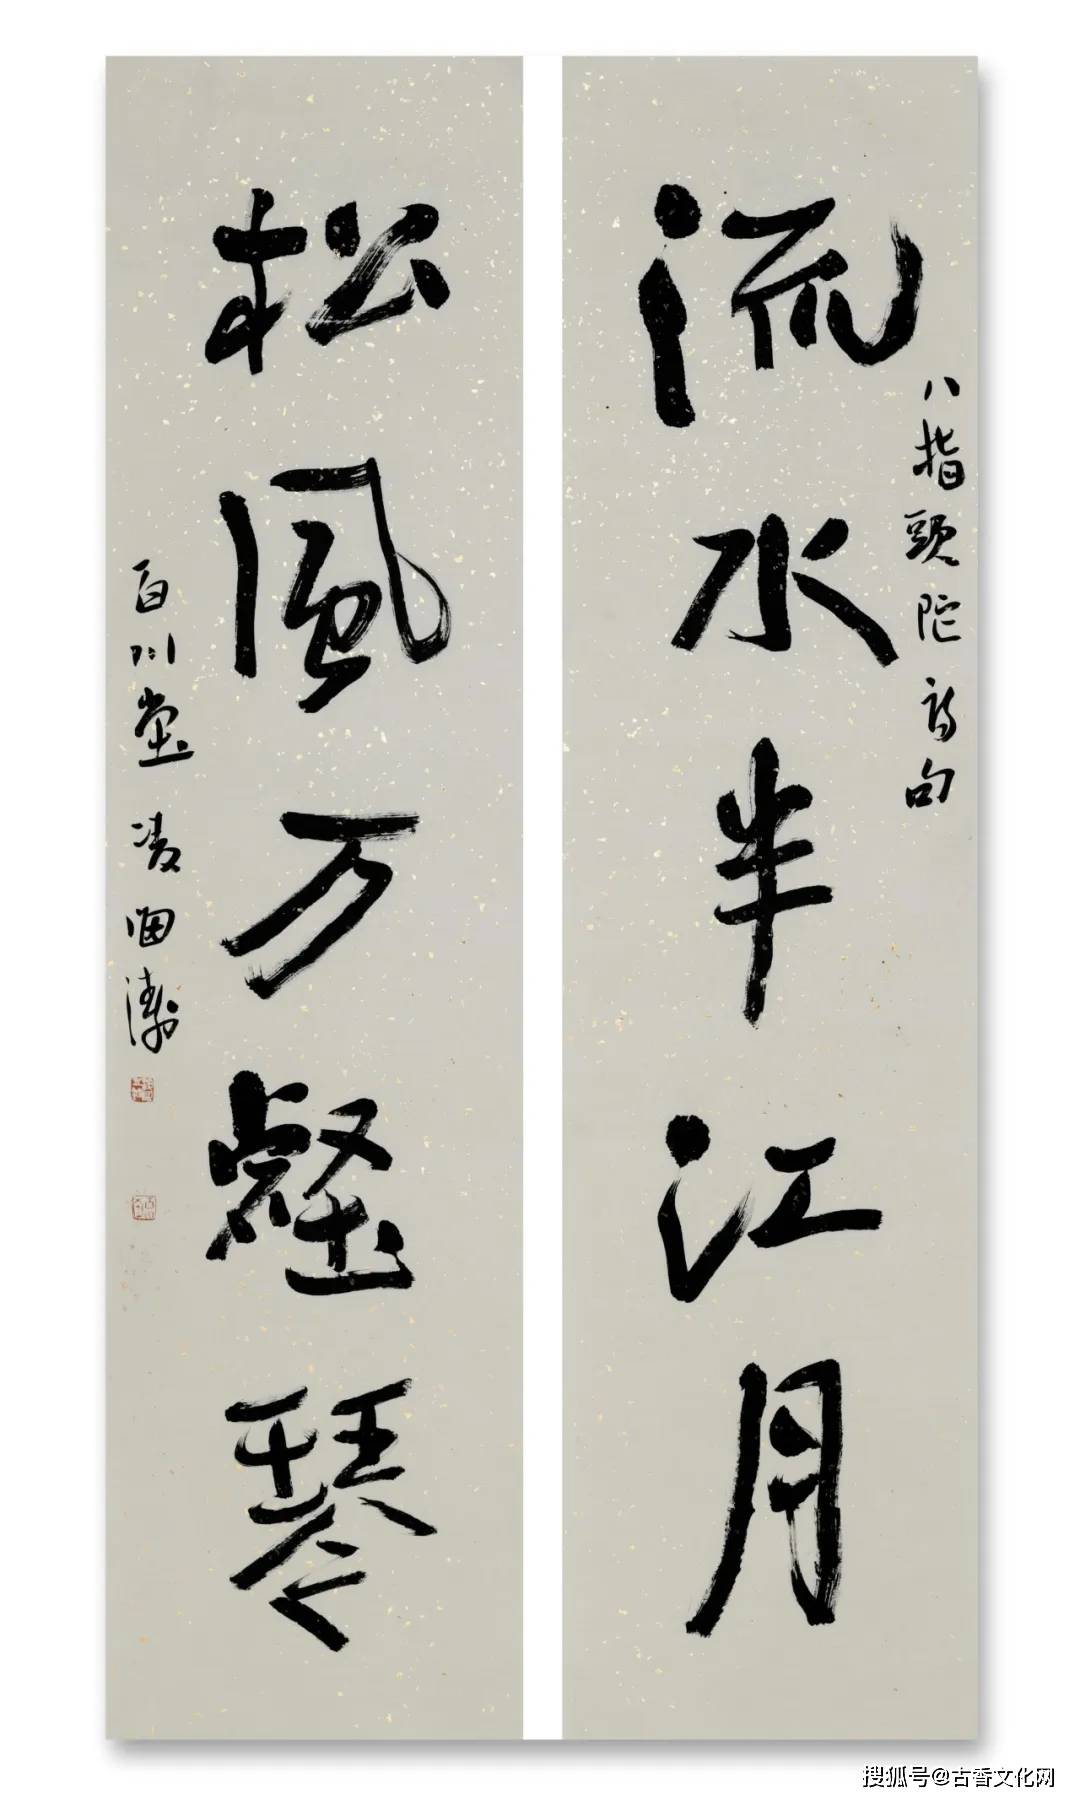 流水半江月
八指頭陀詩句
松風万壑琴
百川堂 凌海涛
搜狐号@古香文化网